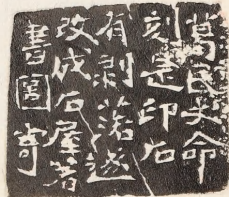 葛民丈命
刻是印石
有剥落遂
改成石屋著
書圖寄